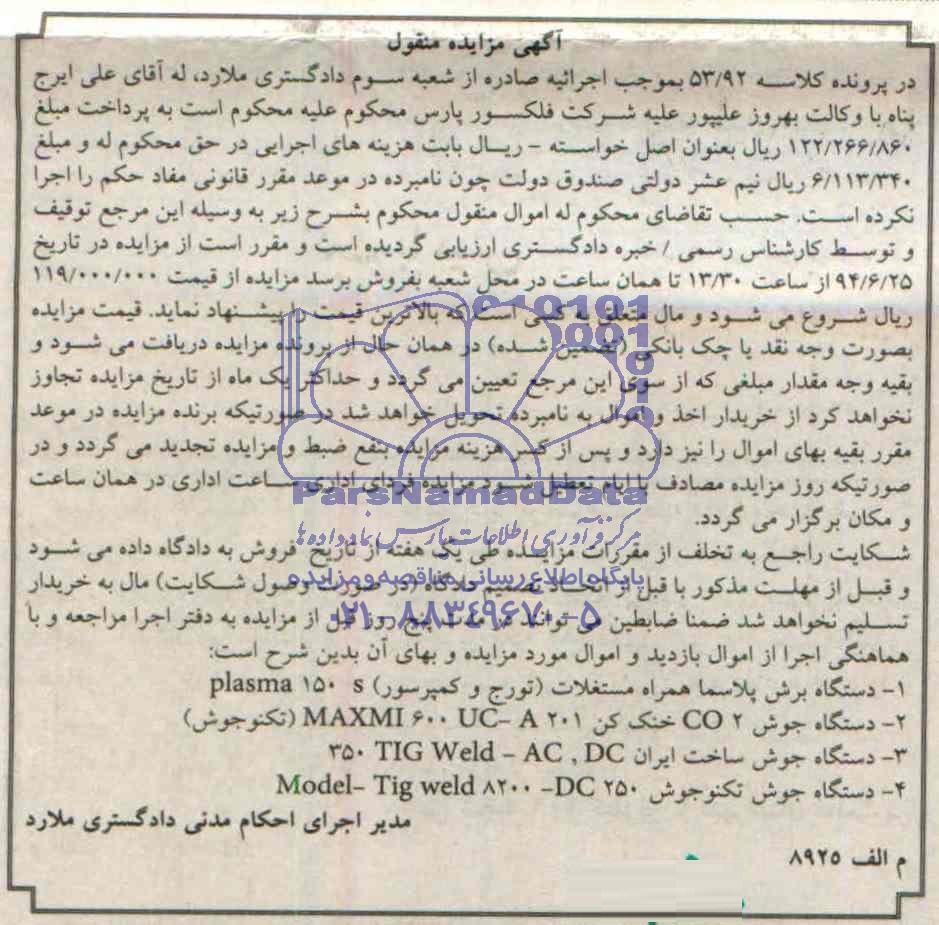 آگهی مزایده منقول
در پرونده کلاسه ۵۳/۹۲ بموجب اجرائیه صادره از شعبه سوم دادگستری ملارد، له آقای علی ایرج
پناه با وکالت بهروز علیپور علیه شرکت فلکسور پارس محکوم علیه محکوم است به پرداخت مبلغ
۱۲۲/۲۶۶/۸۶۰ ریال بعنوان اصل خواسته - ریال بابت هزینه های اجرایی در حق محکوم له و مبلغ
۶/۱۱۳/۳۴۰ ریال نیم عشر دولتی صندوق دولت چون نامبرده در موعد مقرر قانونی مفاد حکم را اجرا
نکرده است. حسب تقاضای محکوم له اموال منقول محکوم بشرح زیر به وسیله این مرجع توقیف
و توسط کارشناس رسمی / خبره دادگستری ارزیابی گردیده است و مقرر است از مزایده در تاریخ
۹۴/۶/۲۵ از ساعت ۱۳/۳۰ تا همان ساعت در محل شعبه بفروش برسد مزایده از قیمت ۱۱۹/۰۰۰/۰۰۰
ریال شروع می شود و مال متعلق به کسی است که بالاترین قیمت را پیشنهاد نماید. قیمت مزایده
بصورت وجه نقد یا چک بانکی (تضمین شده) در همان حال از برونده مزایده دریافت می شود و
بقیه وجه مقدار مبلغی که از سوی این مرجع تعیین می گردد و حداکثر یک ماه از تاریخ مزایده تجاوز
نخواهد کرد از خریدار اخذ و اموال به نامبرده تحویل خواهد شد در صورتیکه برنده مزایده در موعد
مقرر بقیه بهای اموال را نیز دارد و پس از کسر هزینه مزایده بنفع ضبط و مزایده تجدید می گردد و در
صورتیکه روز مزایده مصادف با ایام تعطیل شود مزایده فردای اداری ساعت اداری در همان ساعت
و مکان برگزار می گردد.
شکایت راجع به تخلف از مقررات مزایده طی یک هفته از تاریخ فروش به دادگاه داده می شود
و قبل از مهلت مذکور با قبل از اتخاذ تصمیم دادگاه (در صورت وصول شکایت) مال به خریدار
تسلیم نخواهد شد ضمنا ضابطین می توانند در مدت پنج روز قبل از مزایده به دفتر اجرا مراجعه و با
هماهنگی اجرا از اموال بازدید و اموال مورد مزایده و بهای آن بدین شرح است:
۱- دستگاه برش پلاسما همراه مستغلات (تورج و کمپرسور) plasma ۱۵۰ s
۲- دستگاه جوش CO ۲ خنک کن MAXMI ۶۰۰ UC- A ۲۰۱ (تکنوجوش)
۳- دستگاه جوش ساخت ایران ۳۵۰ TIG Weld - AC , DC
۴- دستگاه جوش تکنوجوش Model- Tig weld ۸۲۰۰ -DC ۲۵۰
مدیر اجرای احکام مدنی دادگستری ملارد
م الف ۸۹۲۵
ParsNamadData
مرکز فرآوری اطلاعات پارس نماد داده ها
پایگاه اطلاع رسانی مناقصه و مزایده
۰۲۱-۸۸۳۴۹۶۷۰-۵